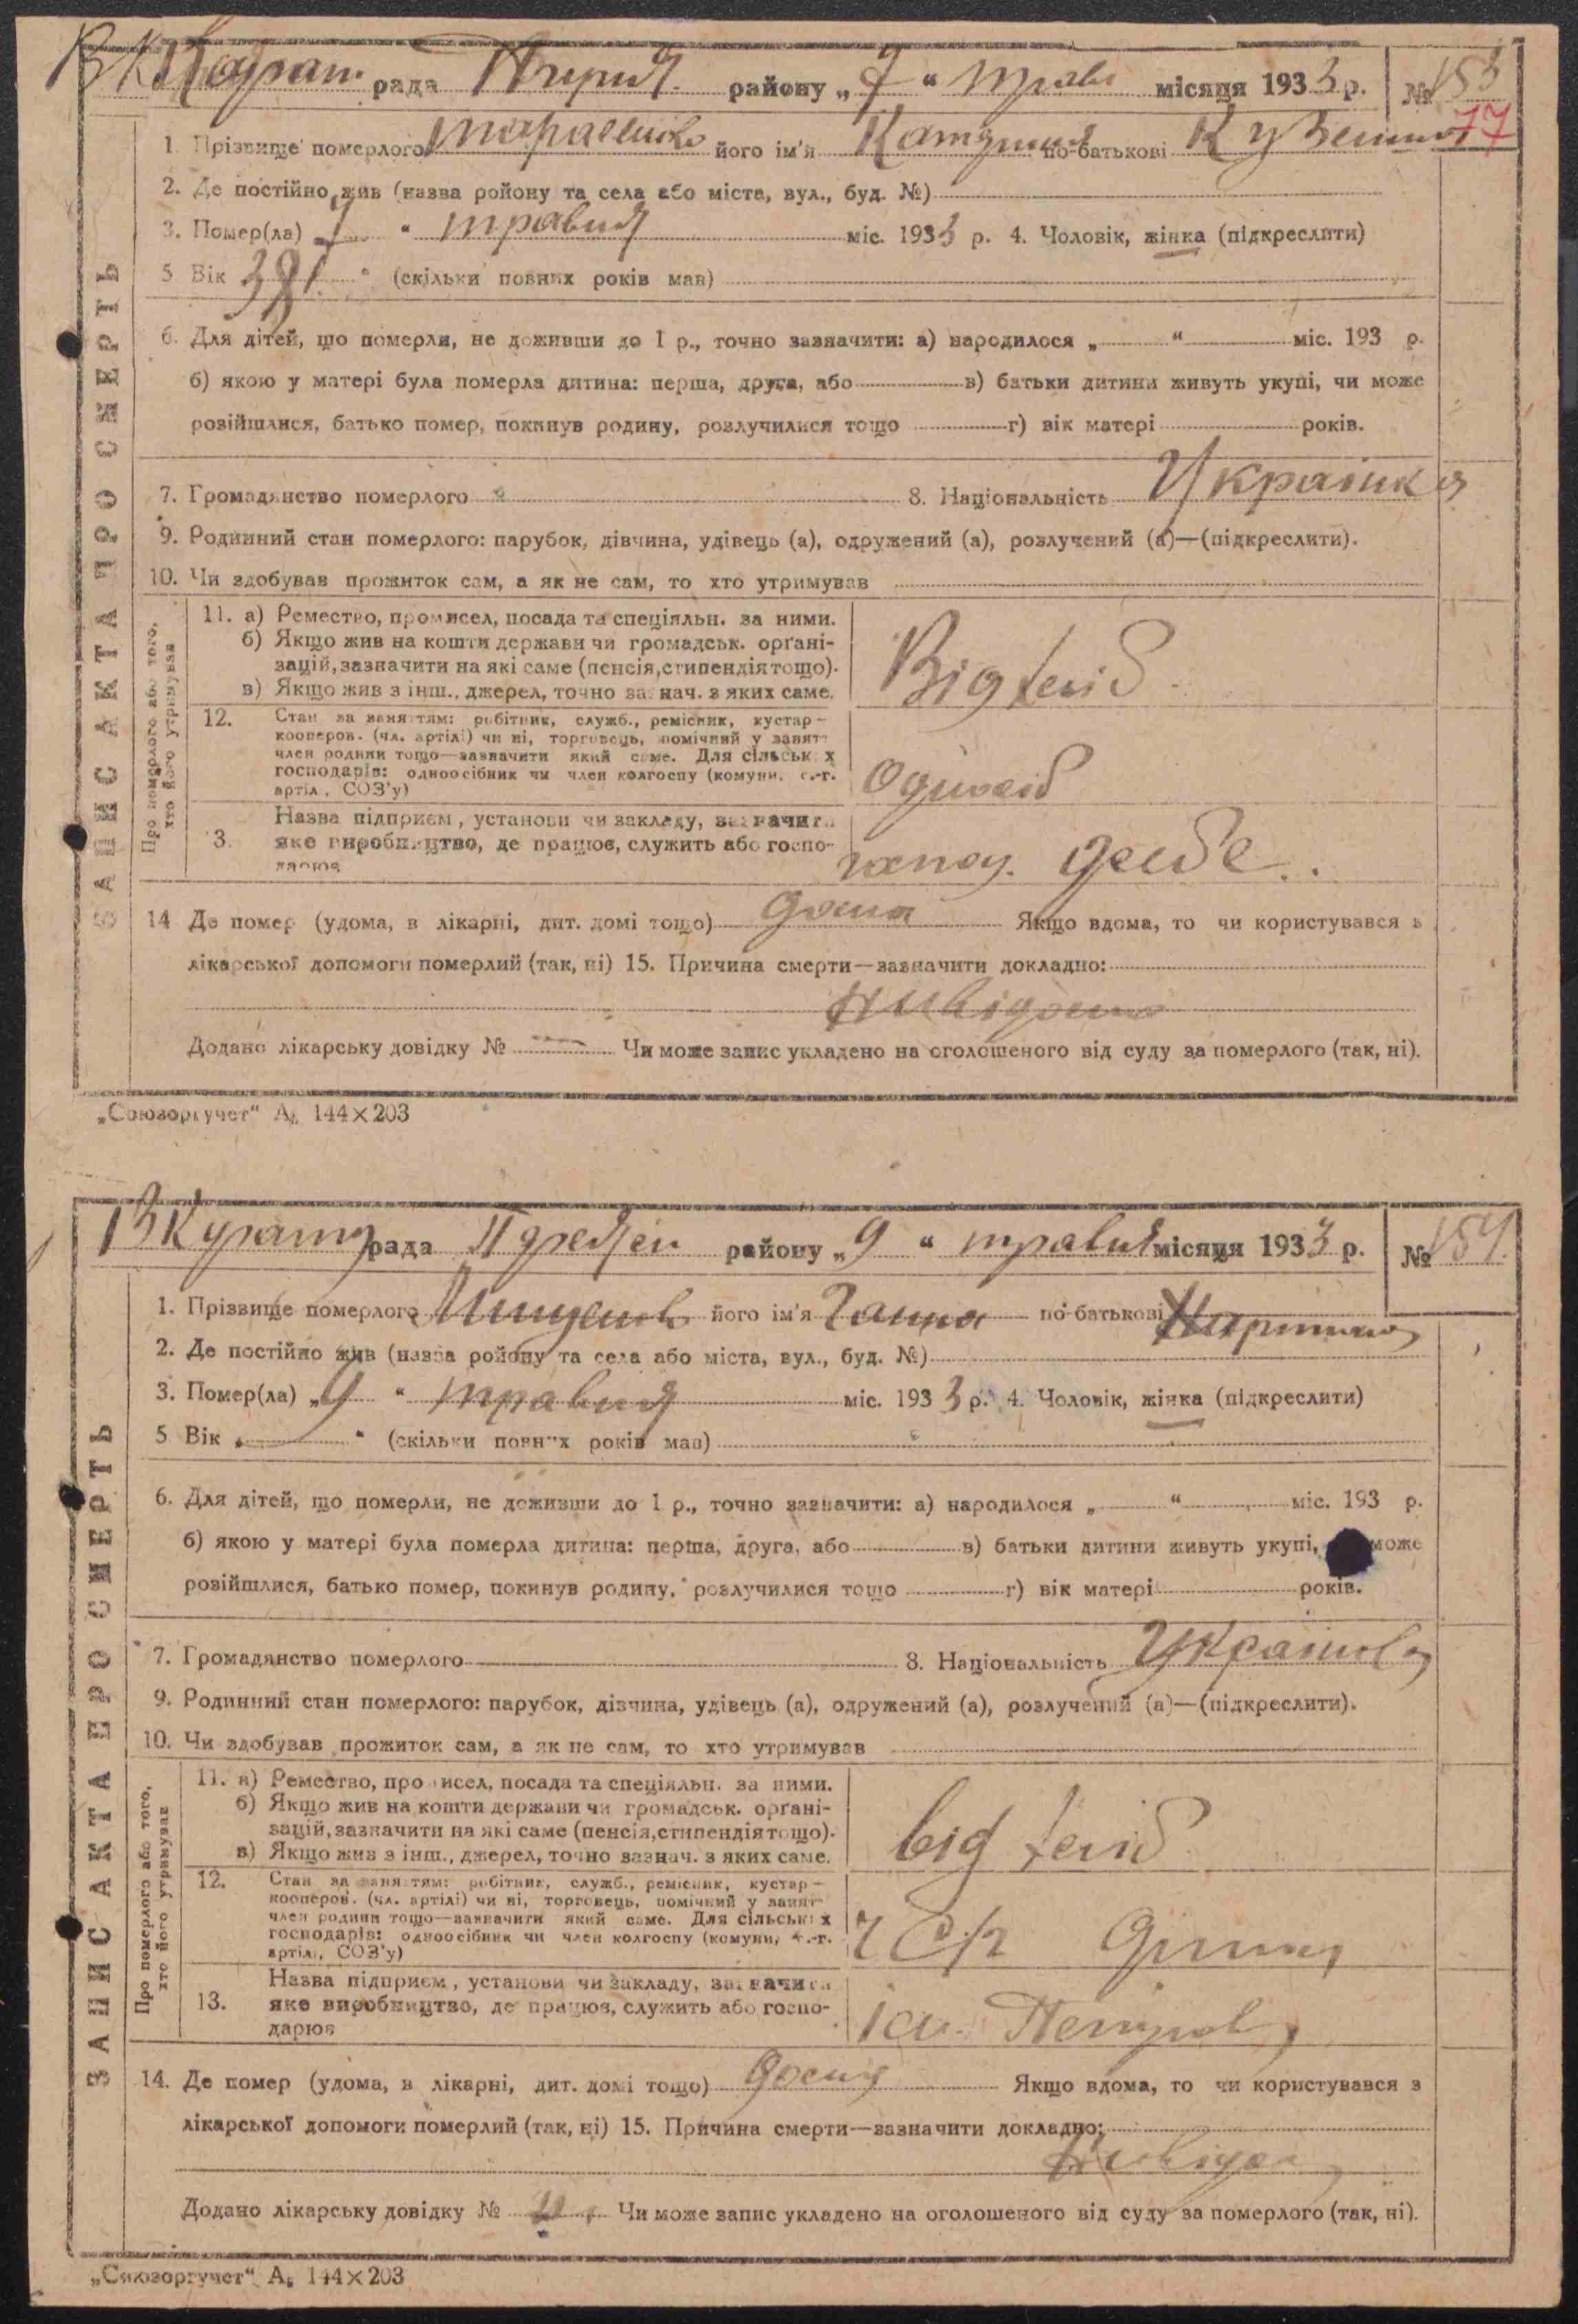 рада району „ 7 “ трав місяця 1933 р. № 153
77
1. Прізвище померлого його ім'я по-батькові
2. Де постійно жив (назва ройону та села або міста, вул., буд. №)
3. Помер(ла) „ 7 “ травня міс. 1933 р. 4. Чоловік, жінка (підкреслити)
5 Вік “ (скільки повних років мав)
6. Для дітей, що померли, не доживши до 1 р., точно зазначити: а) народилося „ “ міс. 193 р.
б) якою у матері була померла дитина: перша, друга, або в) батьки дитини живуть укупі, чи може
розійшлися, батько помер, покинув родину, розлучилися тощо г) вік матері років.
7. Громадянство померлого 8. Національність Українка
9. Родинний стан померлого: парубок, дівчина, удівець (а), одружений (а), розлучений (а)—(підкреслити).
10. Чи здобував прожиток сам, а як не сам, то хто утримував
ЗАПИС АКТА ПРО СМЕРТЬ
Про померлого або того,
хто його утримував
11. а) Ремество, промисел, посада та спеціяльн. за ними.
б) Якщо жив на кошти держави чи громадськ. орґані-
зацій, зазначити на які саме (пенсія, стипендія тощо).
в) Якщо жив з інш., джерел, точно зазнач. з яких саме.
Від землі
12. Стан за заняттям: робітник, служб., ремісник, кустар—
кооперов. (чл. артілі) чи ні, торговець, помічний у занят
член родини тощо—зазначити який саме. Для сільськ х
господарів: одноосібник чи член колгоспу (комуни, с.-г.
артіл, СОЗ'у)
13. Назва підприєм, установи чи закладу, зазначити
яке виробництво, де працює, служить або госпо-
дарює
14 Де помер (удома, в лікарні, дит. домі тощо) дома Якщо вдома, то чи користувався з
лікарської допомоги померлий (так, ні) 15. Причина смерти—зазначити докладно:
Невідомо
Додано лікарську довідку № Чи може запис укладено на оголошеного від суду за померлого (так, ні).
„Союзоргучет“ А₆ 144×203
рада району „ 9 “ травня місяця 1933 р. № 154
1. Прізвище померлого його ім'я Ганна по-батькові
2. Де постійно жив (назва ройону та села або міста, вул., буд. №)
3. Помер(ла) „ 9 “ травня міс. 1933 р. 4. Чоловік, жінка (підкреслити)
5 Вік “ (скільки повних років мав)
6. Для дітей, що померли, не доживши до 1 р., точно зазначити: а) народилося „ “ міс. 193 р.
б) якою у матері була померла дитина: перша, друга, або в) батьки дитини живуть укупі, може
розійшлися, батько помер, покинув родину, розлучилися тощо г) вік матері років.
7. Громадянство померлого 8. Національність Українка
9. Родинний стан померлого: парубок, дівчина, удівець (а), одружений (а), розлучений (а)—(підкреслити).
10. Чи здобував прожиток сам, а як не сам, то хто утримував
ЗАПИС АКТА ПРО СМЕРТЬ
Про померлого або того,
хто його утримував
11. а) Ремество, промисел, посада та спеціяльн. за ними.
б) Якщо жив на кошти держави чи громадськ. орґані-
зацій, зазначити на які саме (пенсія, стипендія тощо).
в) Якщо жив з інш., джерел, точно зазнач. з яких саме.
від землі
12. Стан за заняттям: робітник, служб., ремісник, кустар—
кооперов. (чл. артілі) чи ні, торговець, помічний у занят
член родини тощо—зазначити який саме. Для сільськ х
господарів: одноосібник чи член колгоспу (комуни, с.-г.
артіл, СОЗ'у)
13. Назва підприєм, установи чи закладу, зазначити
яке виробництво, де працює, служить або госпо-
дарює
ім. Петровс
14. Де помер (удома, в лікарні, дит. домі тощо) дома Якщо вдома, то чи користувався з
лікарської допомоги померлий (так, ні) 15. Причина смерти—зазначити докладно:
Невідомо
Додано лікарську довідку № Чи може запис укладено на оголошеного від суду за померлого (так, ні).
„Союзоргучет“ А₆ 144×203